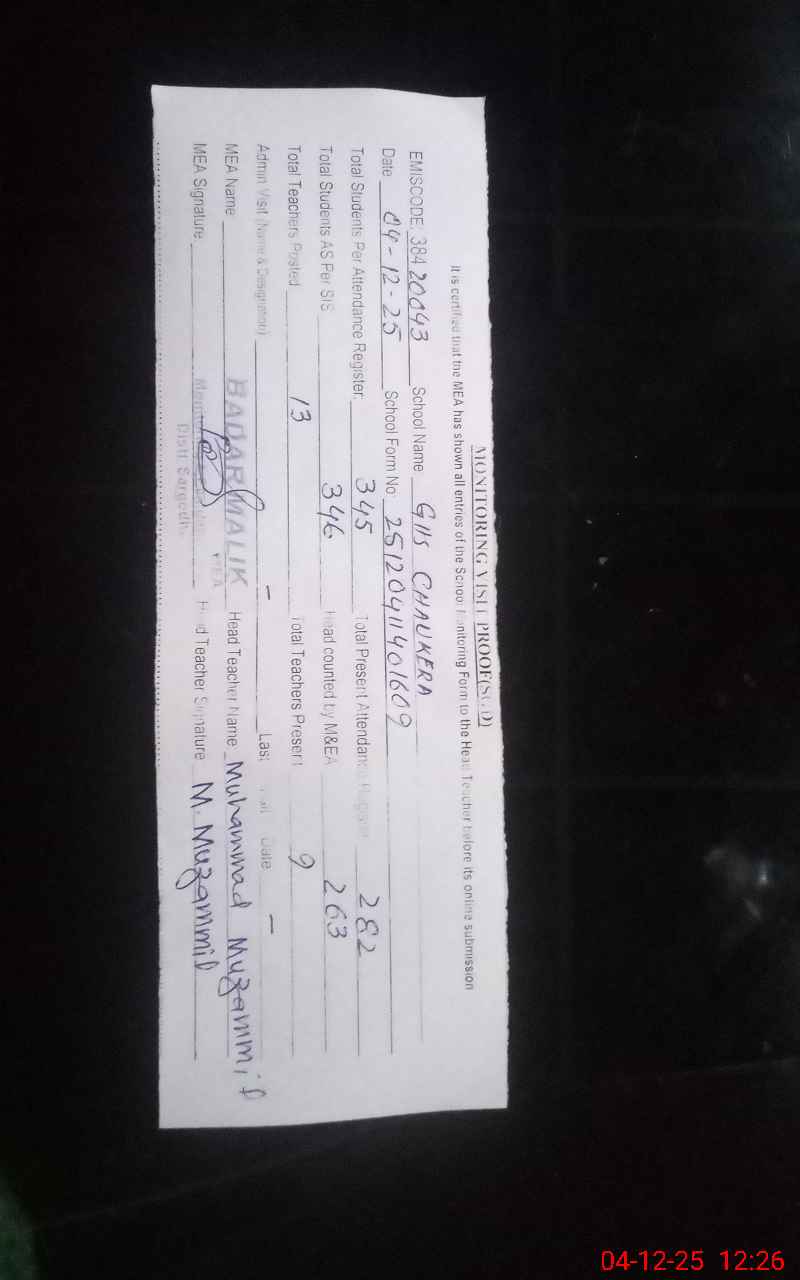 MONITORING VISIT PROOF(SED)
It is certified that the MEA has shown all entries of the School Monitoring Form to the Head Teacher before its online submission
EMISCODE: 38420043 School Name GHS CHAUKERA
Date 04-12-25 School Form No: 25120411401609
Total Students Per Attendance Register: 345 Total Present Attendance Register 282
Total Students AS Per SIS 346 Head counted by M&EA 263
Total Teachers Posted 13 Total Teachers Present 9
Admin Visit (Name & Designation) - Last Visit Date -
MEA Name BADAR MALIK Head Teacher Name Muhammad Muzammil
MEA Signature Head Teacher Signature M. Muzammil
Distt Sargodha
04-12-25 12:26